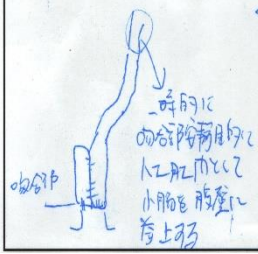 一時的に
吻合部安静目的に
人工肛門として
小腸を腹壁に
挙上する
吻合部